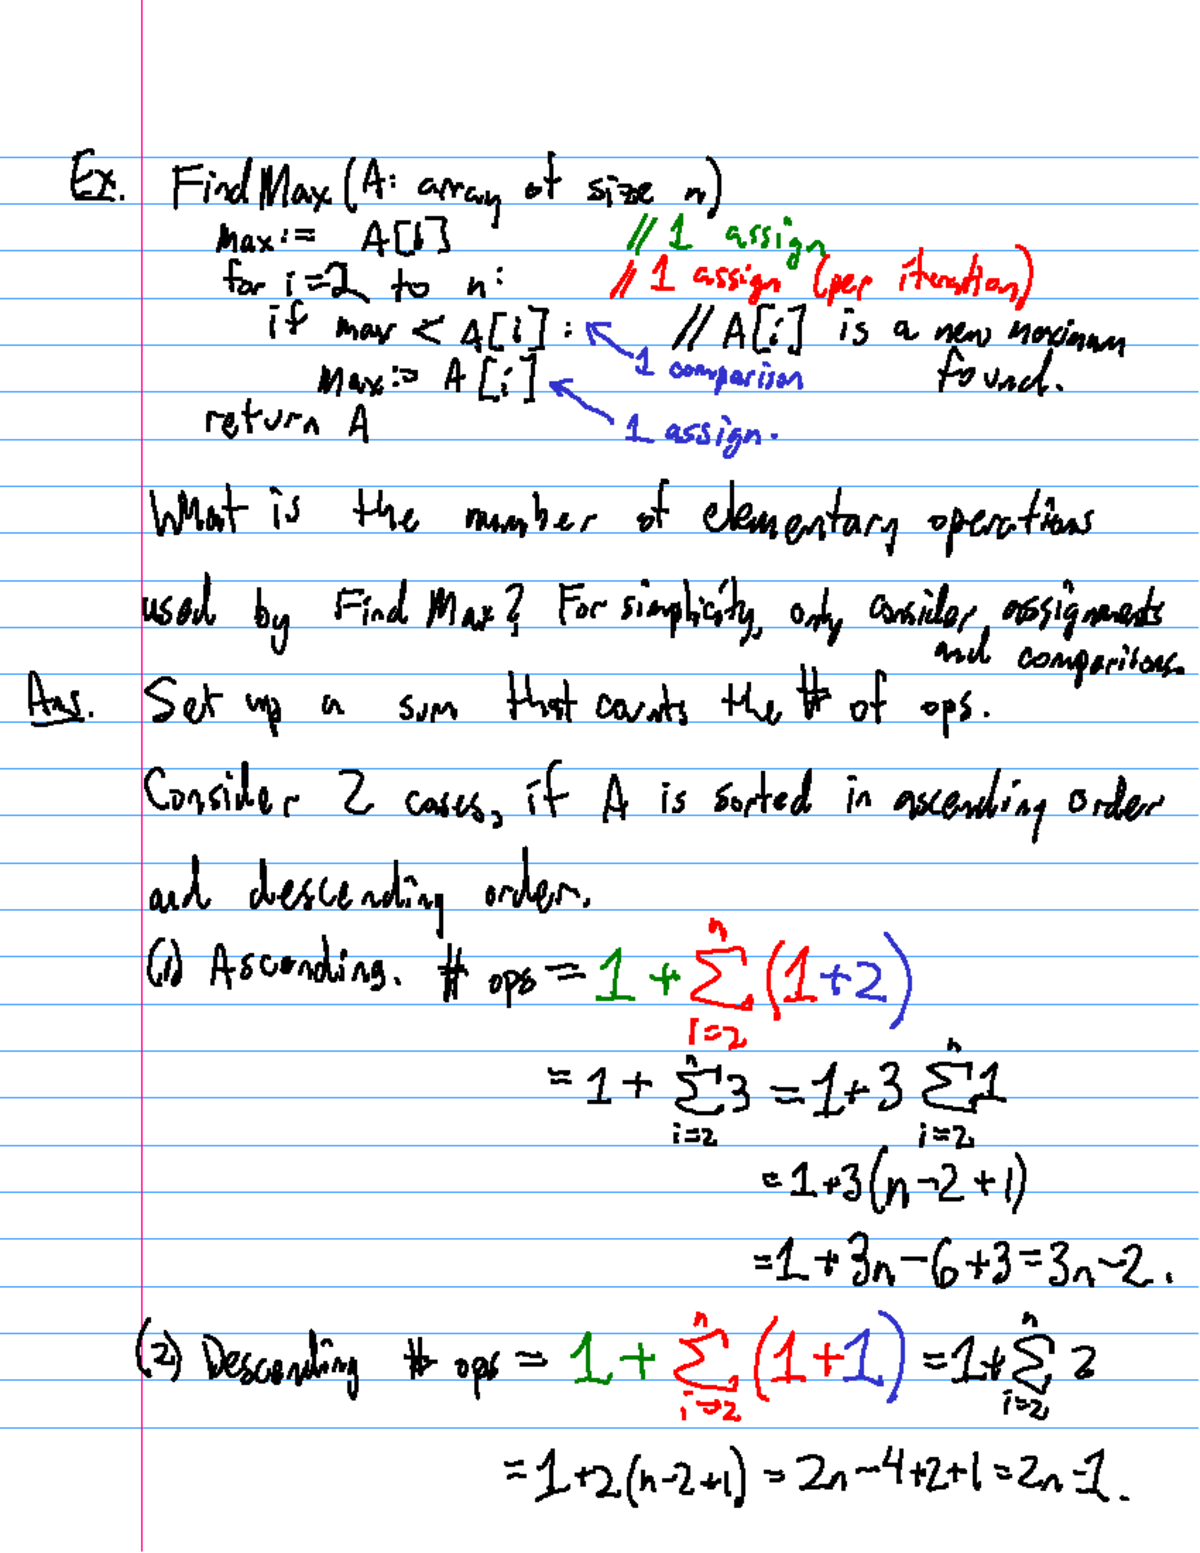 Ex. FindMax(A: array of size n)
max := A[1] // 1 assign
for i=2 to n: // 1 assign (per iteration)
if max < A[i]: // A[i] is a new maximum found.
1 comparison
max := A[i]
1 assign.
return A
What is the number of elementary operations
used by Find Max? For simplicity, only consider assignments
and comparisons.
Ans. Set up a sum that counts the # of ops.
Consider 2 cases, if A is sorted in ascending order
and descending order.
(1) Ascending. # ops = 1 + ∑_{i=2}^{n} (1+2)
= 1 + ∑_{i=2}^{n} 3 = 1+3 ∑_{i=2}^{n} 1
= 1+3(n-2+1)
= 1+3n-6+3 = 3n-2.
(2) Descending # ops = 1 + ∑_{i=2}^{n} (1+1) = 1+ ∑_{i=2}^{n} 2
= 1+2(n-2+1) = 2n-4+2+1 = 2n-1.